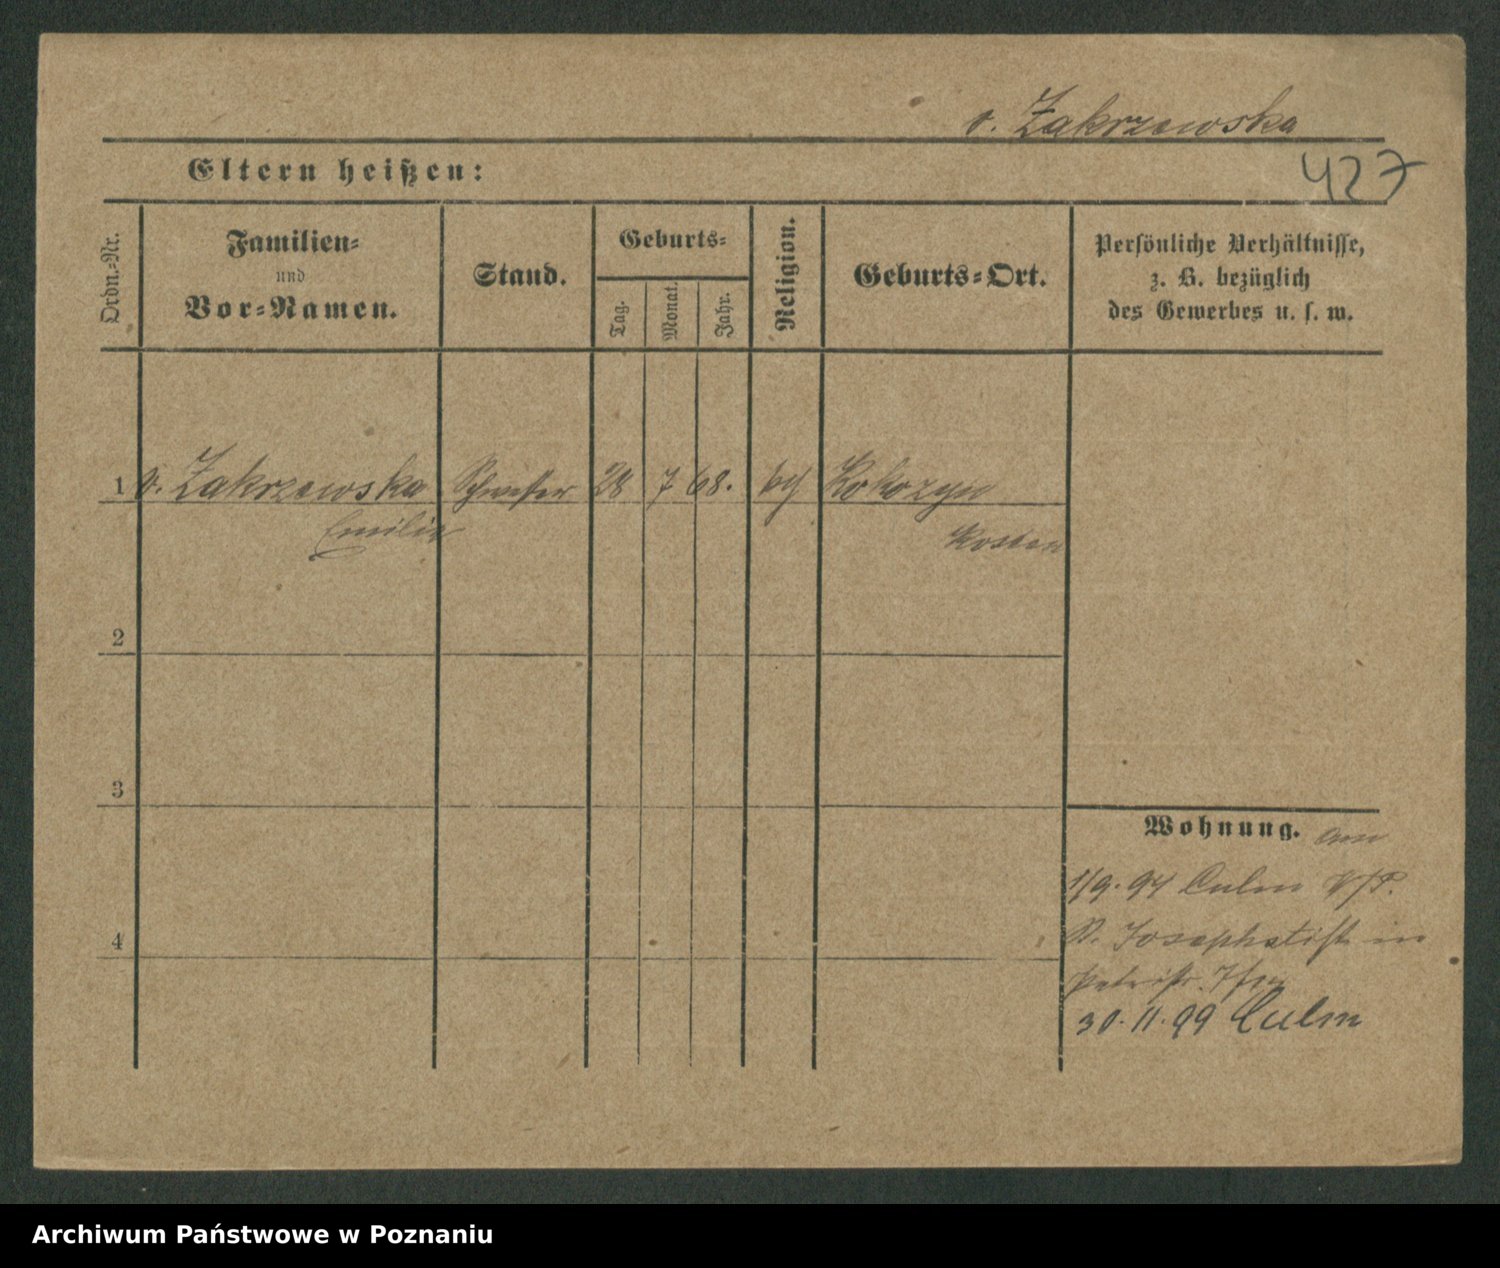 v. Zakrzewska
427
Eltern heißen:
Ordn.-Nr.
Familien-
und
Vor-Namen.
Stand.
Geburts-
Tag.
Monat.
Jahr.
Religion.
Geburts-Ort.
Persönliche Verhältnisse,
z. B. bezüglich
des Gewerbes u. s. w.
1 v. Zakrzewska Schwester 28 7 68. Kokorzyn
Emilie Kosten
2
3
4
Wohnung. am
1/9. 94 Culm
Josephstift in
30. 11. 99 Culm
Archiwum Państwowe w Poznaniu